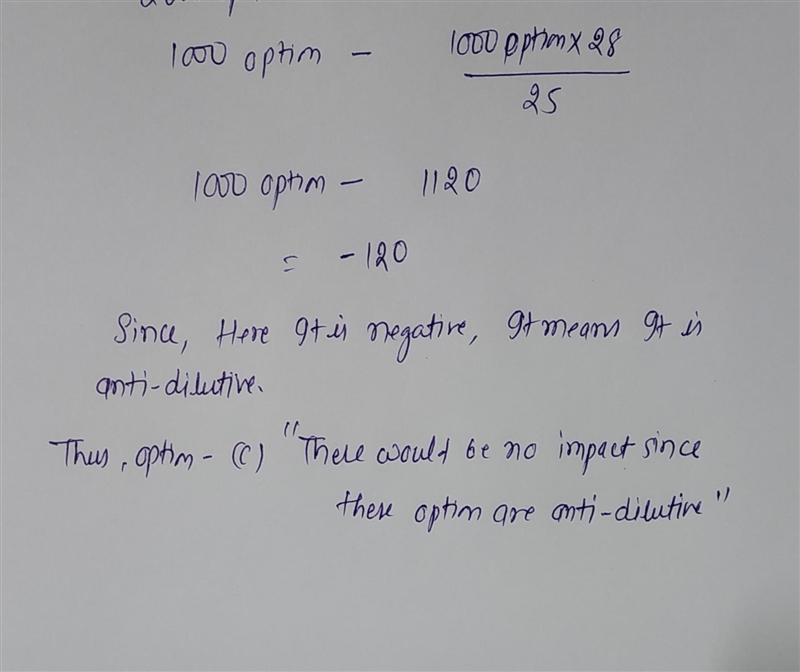 1000 optim - 1000 optim x 28
25
1000 optim - 1120
= -120
Since, Here It is negative, It means It is
anti-dilutive.
Thus, optim - (C) "There would be no impact since
these optim are anti-dilutive"